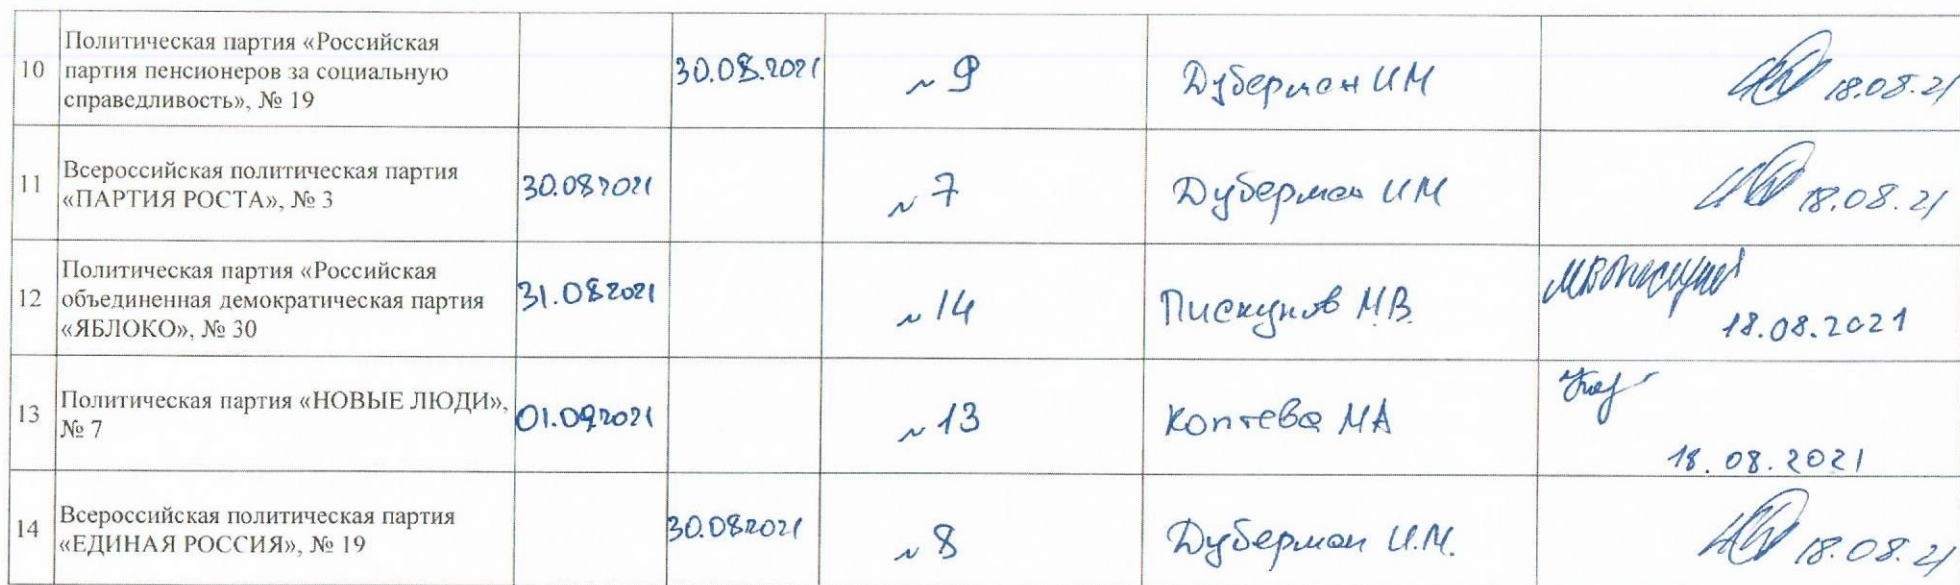 10 Политическая партия «Российская
партия пенсионеров за социальную
справедливость», № 19
30.08.2021
~ 9
Дуберман И М
18.08.21
11 Всероссийская политическая партия
«ПАРТИЯ РОСТА», № 3
30.08 2021
~ 7
Дуберман И М
18.08.21
12 Политическая партия «Российская
объединенная демократическая партия
«ЯБЛОКО», № 30
31.08 2021
~ 14
Пискунов М.В.
18.08.2021
13 Политическая партия «НОВЫЕ ЛЮДИ»,
№ 7
01.09 2021
~ 13
Коптева МА
18.08.2021
14 Всероссийская политическая партия
«ЕДИНАЯ РОССИЯ», № 19
30.08 2021
~ 8
Дуберман И.М.
18.08.21